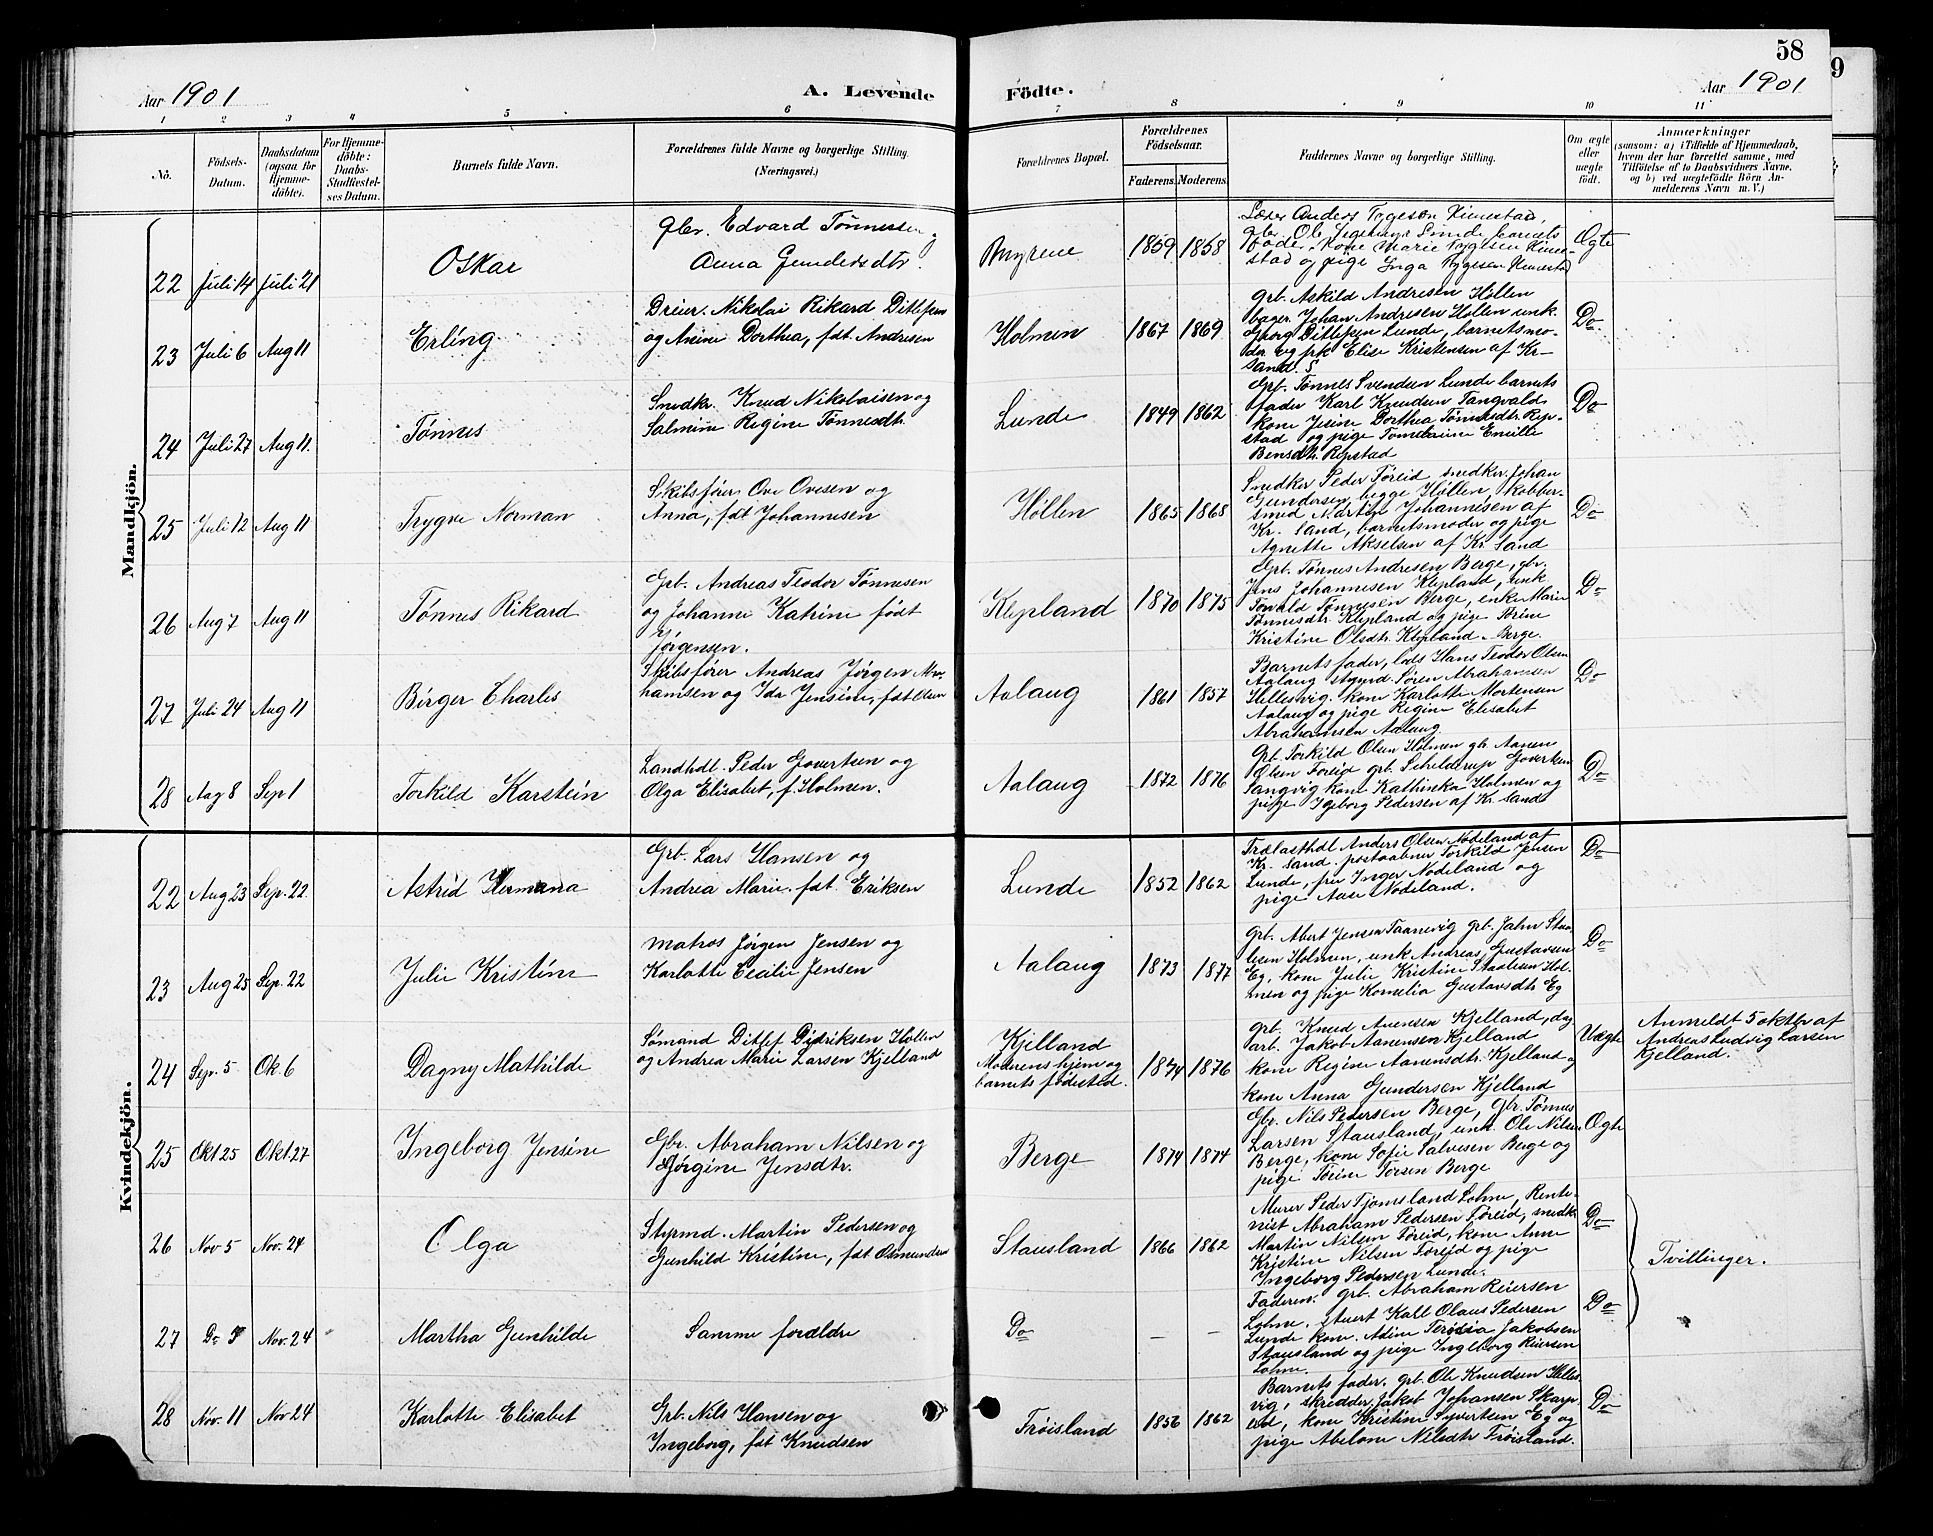 58
9
Aar 1901
A. Levende
Födte.
Aar 1901
1 2 3 4 5 6 7 8 9 10 11
No.
Födsels-
Datum.
Daabsdatum
(ogsaa for
Hjemme-
döbte).
For Hjemme-
döbte:
Daabs-
Stadfæstel-
ses Datum.
Barnets fulde Navn.
Forældrenes fulde Navne og borgerlige Stilling
(Næringsvei.)
Forældrenes Bopæl.
Forældrenes
Födselsaar.
Faderens. Moderens.
Faddernes Navne og borgerlige Stilling.
Om ægte
eller
uægte
födt.
Anmærkninger
(saasom: a) i Tilfælde af Hjemmedaab,
hvem der har forrettet samme, med
Tilföielse af to Daabsvidners Navne,
og b) ved uægtefödte Börn An-
melderens Navn m. V.)
Mandkjön.
22 Juli 14 Juli 21
Oskar
Gbr. Edvard Tønnessen og
Anna Gundersdtr.
Myrene
1859 1858
Læser Anders Tygesen Kinestad,
gbr. Ole Sunde barnets
fader. kone Marie Tygesen Kine-
stad og pige Inga Tygesen Kinestad
Ægte
23 Juli 6 Aug 11
Erling
Dreier. Nikolai Rikard Ditlefsen
og Anine Dorthea, fdt. Andresen
Holmen
1867 1869
Grb. Askild Andresen Høllen
bager. Johan Andresen Høllen unk.
Georg Ditlefsen Lunde, barnetsmo-
der og frk Elise Kristensen af Kr-
sand. S
Do
24 Juli 27 Aug 11.
Tønnes
Snedkr. Knud Nikolaisen og
Salmine Regine Tønnesdtr.
Lunde
1849 1862
Grb. Tønnes Svendsen Lunde barnets
fader Karl Knudsen Tangvald
kone Jesine Dorthea Tønnesdtr. Rep-
stad og pige Tomine Emilie
Bensdtr. Repstad
Do
25 Juli 12 Aug 11
Trygve Norman
Skibsfører Ove Ovesen og
Anna, fdt Johannesen
Høllen
1865 1868
Snedker Peder Føreid snedker. Johan
Gundersen, begge Høllen, kobber-
smed Martin Johannesen af
Kr. sand, barnetsmoder og pige
Agnette Akselsen af Kr. sand
Do
26 Aug 7 Aug 11
Tønnes Rikard
Grb. Andreas Teodor Tønnesen
og Johanne Katrine født
Jørgensen.
Klepland
1870 1875
Grb. Tønnes Andresen Berge, gbr.
Jens Johannesen Klepland, unk
Torvald Tønnesen Berge, enke Marie
Tønnesdtr. Klepland og pige Torine
Kristine Olsdtr. Klepland. Berge.
Do
27 Juli 24 Aug 11
Birger Charles
Skibsfører Andreas Jørgen Abra-
hamsen og Ida Jensine, fdt Olsen
Aalaug
1861 1857
Barnets fader, lods Hans Teodor Olsen
Aalaug styrmd. Søren Abrahamsen
Hellesvig. kone Karlotte Mortensen
Aalaug og pige Regine Elisabet
Abrahamsen Aalaug.
Do
28 Aug 8 Sep 1
Torkild Karstein
Landhdl. Peder Govertsen og
Olga Elisabet, f. Holmen.
Aalaug
1872 1876
Grb Torkild Olsen Holmen gb. Aanen
Olsen Foreid grb. Schildrup Govertsen
Langvig kone Kathinka Holmen og
pige Igeborg Pedersen af Kr. sand
Do
Kvindekjön.
22 Aug 23 Sep. 22.
Astrid Hermana
Grb. Lars Hansen og
Andrea Marie. fdt. Eriksen
Lunde
1852 1862
Trælasthdl. Anders Olsen Nodeland af
Kr. sand. postaabner Torkild Jensen
Lunde, fru Inger Nodeland og
pige Aase Nodeland.
Do
23 Aug 25 Sep. 22
Julie Kristine
Matros Jørgen Jensen og
Karlotte Cecilie Jensen
Aalaug
1873 1877
Grb. Abert Jensen Taanevig grb. Jahn Staa-
lesen Holmen, unk Andreas Gustavsen
Eg, kone Julie Kristine Staalesen Hol-
men og pige Kornelia Gustavsdtr Eg
Do
24 Sep. 5 Ok 6
Dagny Mathilde
Sømand Ditlef Didriksen Høllen
og Andrea Marie Larsen Kjelland
Kjelland
Moderens hjem og
barnets fødested.
1874 1876
grb. Knud Auensen Kjelland, dag
arb. Jakob Aanensen Kjelland
kone Regine Aanensdtr. Kjelland og
kone Anna Gundersen Kjelland
Uægte
Anmeldt 5 oktbr af
Andreas Ludvig Larsen
Kjelland.
25 Okt 25 Okt. 27
Ingeborg Jensine
Gbr. Abraham Nilsen og
Gjørgine Jensdtr.
Berge
1874 1874
Gbr. Nils Pedersen Berge, Gbr. Tønnes
Larsen Stausland, unk. Ole Nilsen
Berge, kone Sofie Salvesen Berge og
pige Torine Torsen Berge
Ægte
26 Nov 5 Nov. 24
Olga
Styrmd. Martin Pedersen og
Gunhild Kristine, fdt Osmundsen
Stausland
1866 1862
Murer Peder Tjomsland Lohne, Rente-
nist Abraham Pedersen Føreid, snedk
Martin Nilsen Føreid, kone Anne
Kristine Nilsen Føreid og pige
Ingeborg Pedersen Lunde.
Do
Tvillinger.
27 Do 5 Nov. 24
Martha Gunhilde
Samme forældre
Do
– –
Faderen. grb. Abraham Reiersen
Lohne. stuert Karl Olaus Pedersen
Lunde kone. Adine Teresia Jakobsen
Stausland og pige Ingeborg Reiersen
Lohne.
Do
28 Nov. 11 Nov 24
Karlotte Elisabet
Grb. Nils Hansen og
Ingeborg, fdt Knudsen
Frøisland
1856 1862
Barnets fader. grb. Ole Knudsen Helles-
vig, skredder Jakob Johansen Skarp-
eid, kone Kristine Syvertsen Eg og
pige Abelone Nilsdtr Frøisland.
Do